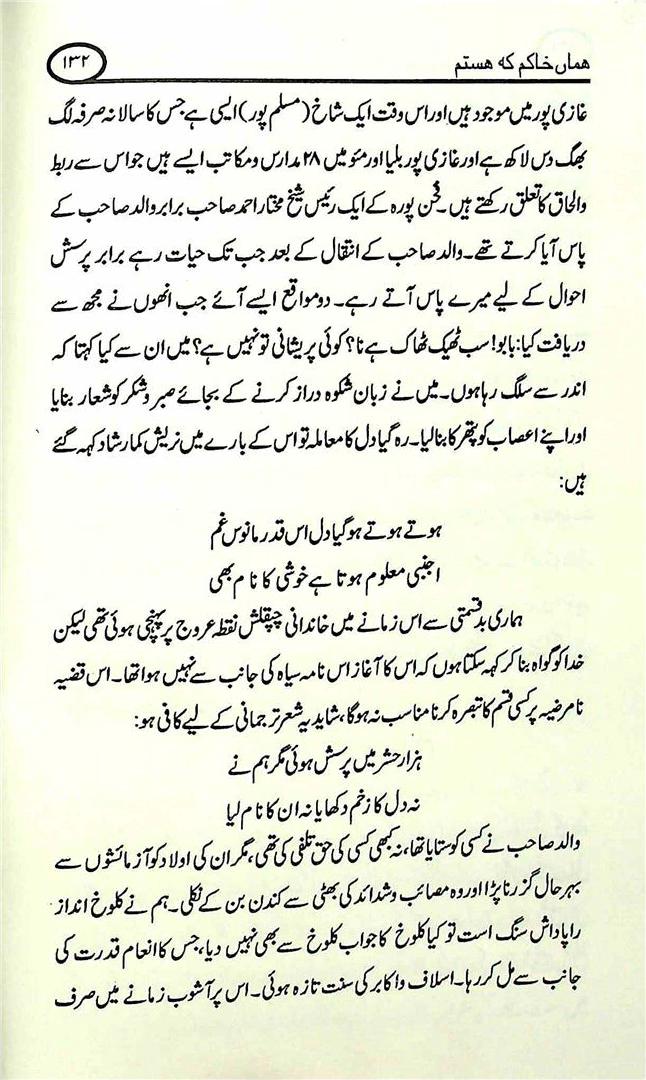 ہماں خاکم کہ ہستم
۱۳۲
غازی پور میں موجود ہیں اور اس وقت ایک شاخ (مسلم پور) ایسی ہے جس کا سالانہ صرفہ لگ
بھگ دس لاکھ ہے اور غازی پور بلیا اور مئو میں ۲۸ مدارس و مکاتب ایسے ہیں جو اس سے ربط
والحاق کا تعلق رکھتے ہیں۔ محسن پورہ کے ایک رئیس شیخ مختار احمد صاحب برابر والد صاحب کے
پاس آیا کرتے تھے۔ والد صاحب کے انتقال کے بعد جب تک حیات رہے برابر پرسش
احوال کے لیے میرے پاس آتے رہے۔ دو مواقع ایسے آئے جب انھوں نے مجھ سے
دریافت کیا: بابو! سب ٹھیک ٹھاک ہے نا؟ کوئی پریشانی تو نہیں ہے؟ میں ان سے کیا کہتا کہ
اندر سے سلگ رہا ہوں۔ میں نے زبان شکوہ دراز کرنے کے بجائے صبر و شکر کو شعار بنایا
اور اپنے اعصاب کو پتھر کا بنا لیا۔ رہ گیا دل کا معاملہ تو اس کے بارے میں نریش کمار شاد کہہ گئے
ہیں:
ہوتے ہوتے ہو گیا دل اس قدر مانوس غم
اجنبی معلوم ہوتا ہے خوشی کا نام بھی
ہماری بدقسمتی سے اس زمانے میں خاندانی چپقلش نقطۂ عروج پر پہنچی ہوئی تھی لیکن
خدا کو گواہ بنا کر کہہ سکتا ہوں کہ اس کا آغاز اس نامہ سیاہ کی جانب سے نہیں ہوا تھا۔ اس قضیہ
نامرضیہ پر کسی قسم کا تبصرہ کرنا مناسب نہ ہوگا، شاید یہ شعر ترجمانی کے لیے کافی ہو:
ہزار حشر میں پرسش ہوئی مگر ہم نے
نہ دل کا زخم دکھایا نہ ان کا نام لیا
والد صاحب نے کسی کو ستایا تھا، نہ کبھی کسی کی حق تلفی کی تھی، مگر ان کی اولاد کو آزمائشوں سے
بہر حال گزرنا پڑا اور وہ مصائب و شدائد کی بھٹی سے کندن بن کے نکلی۔ ہم نے کلوخ انداز
را پاداش سنگ است تو کیا کلوخ کا جواب کلوخ سے بھی نہیں دیا، جس کا انعام قدرت کی
جانب سے مل کر رہا۔ اسلاف و اکابر کی سنت تازہ ہوئی۔ اس پر آشوب زمانے میں صرف